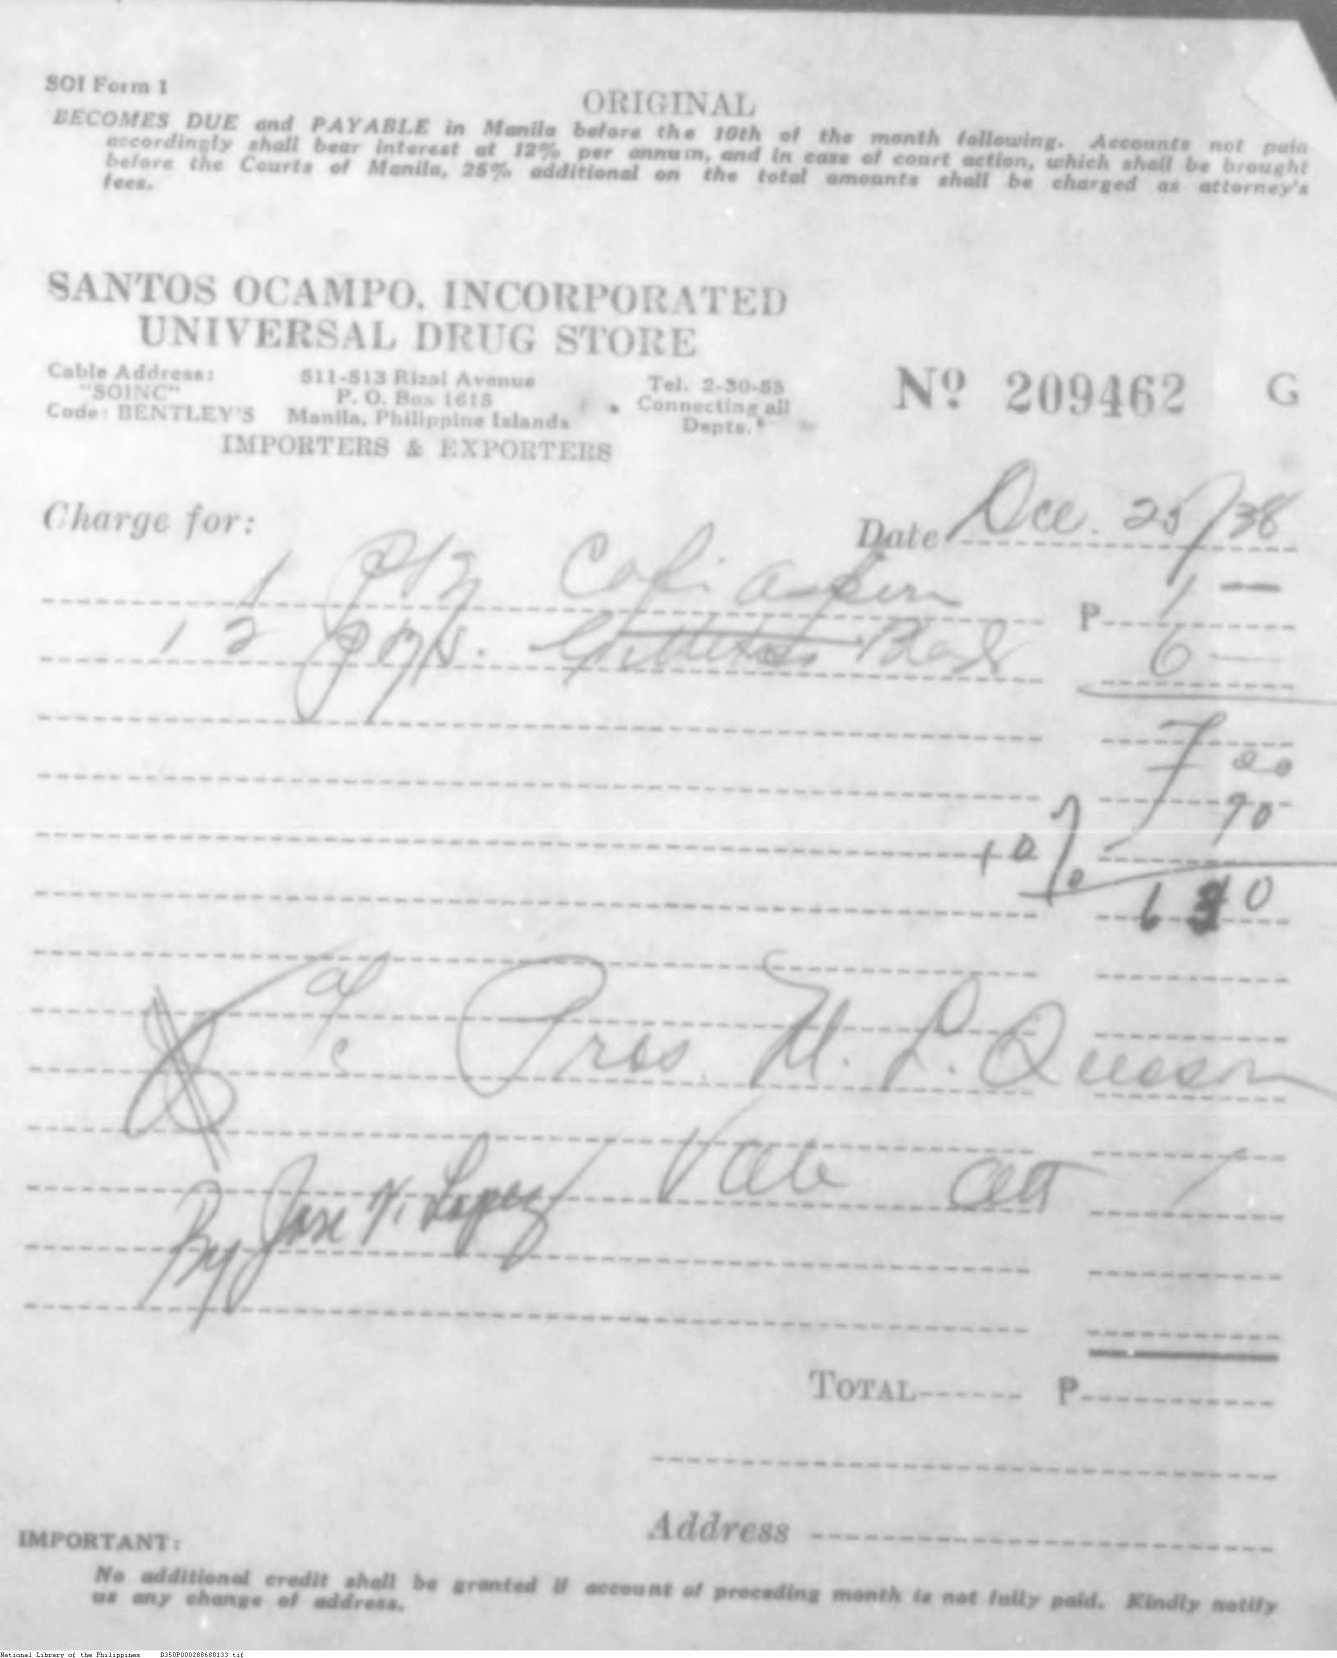 SOI Form 1
ORIGINAL
BECOMES DUE and PAYABLE in Manila before the 10th of the month following. Accounts not paid
accordingly shall bear interest at 12% per annum, and in case of court action, which shall be brought
before the Courts of Manila, 25% additional on the total amounts shall be charged as attorney's
fees.
SANTOS OCAMPO, INCORPORATED
UNIVERSAL DRUG STORE
Cable Address: 511-513 Rizal Avenue Tel. 2-30-55
"SOINC" P. O. Box 1615 Connecting all
Code: BENTLEY'S Manila, Philippine Islands Depts.
IMPORTERS & EXPORTERS
Nº 209462 G
Charge for: Date Dec. 25/38
1 Cafiaspirin P 1 —
12 pkgs. Blades 6 —
7 00
10% 70
6 30
a/c Pres. M. L. Quezon
By Jose N. Lopez
TOTAL P
Address
IMPORTANT:
No additional credit shall be granted if account of preceding month is not fully paid. Kindly notify
us any change of address.
National Library of the Philippines B350P000288680133.tif